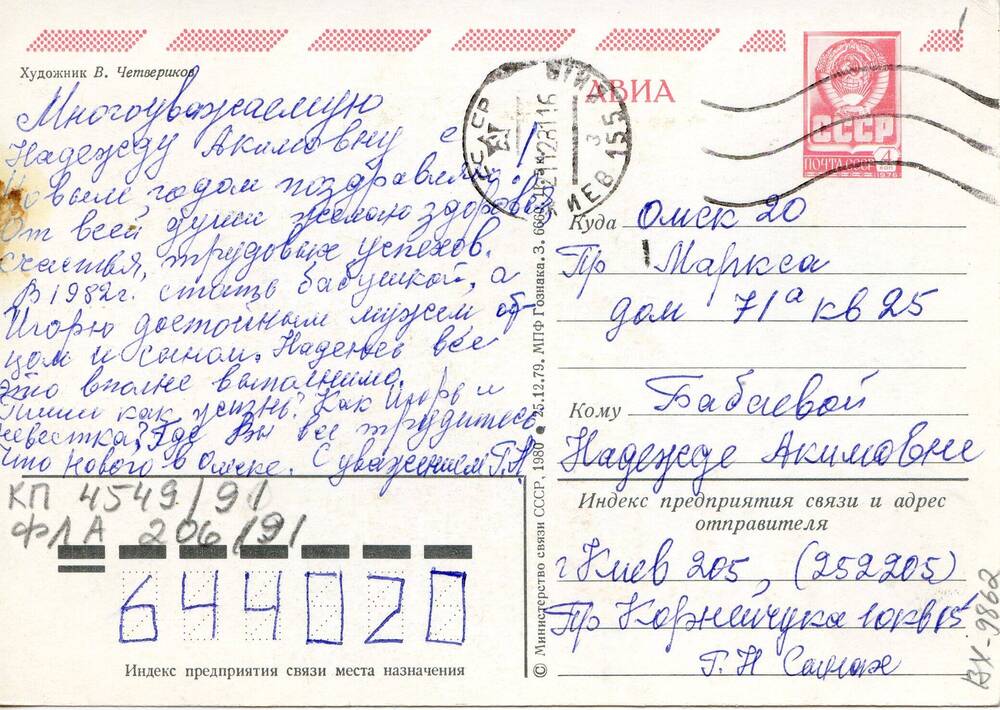 Художник В. Четвериков
АВИА
СССР
ПОЧТА СССР 4 коп
1976
Многоуважаемую
Надежду Акимовну с
Новым годом поздравляю!
От всей души желаю здоровья
счастья, трудовых успехов.
В 1982г. стать бабушкой, а
Игорю достойным мужем от-
цом и сыном. Надеюсь все
это вполне выполнимо.
Пиши как жизнь? Как Игорь и
невестка? Где Вы все трудитесь
что нового в Омске. С уважением Г.Н
КП 4549/91
ФЛА 206/91
644020
Индекс предприятия связи места назначения
© Министерство связи СССР, 1980 ● 25.12.79. МПФ Гознака. З. 6666.
КИЕВ 155
Куда Омск 20
Пр Маркса
дом 71а кв 25
Кому Бабаевой
Надежде Акимовне
Индекс предприятия связи и адрес
отправителя
г Киев 205, (252205)
Пр Корнейчука 10 кв 15
Г. Н
ВХ-9862